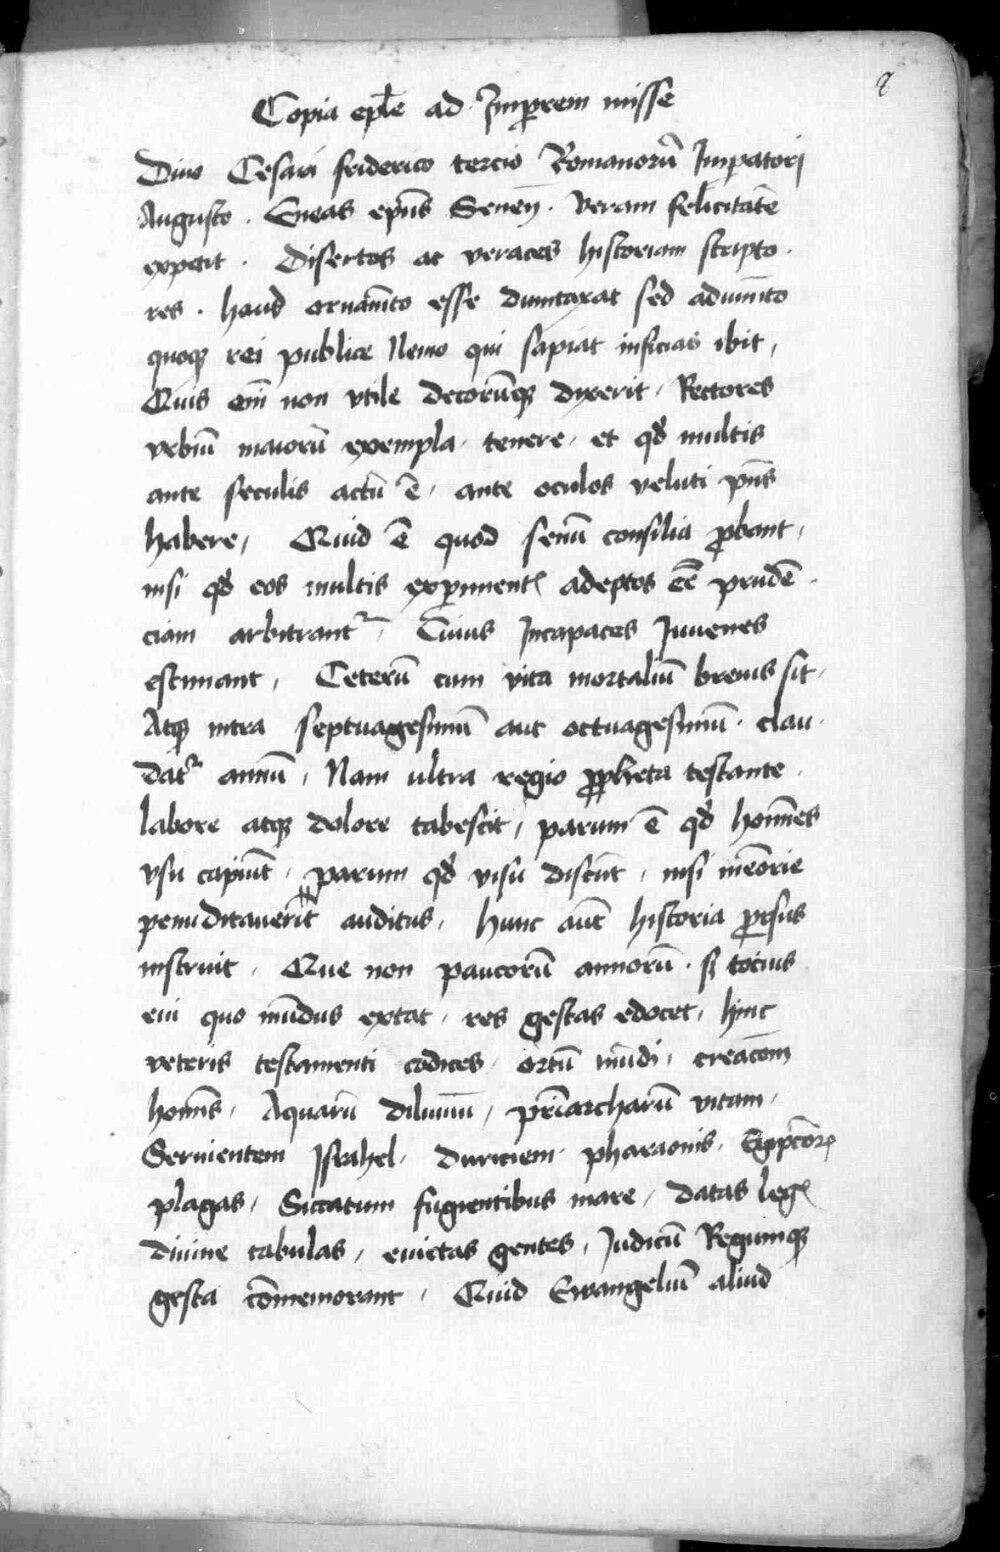 8
Copia eplē ad Imꝑrem misse
Diuo Cesari friderico tercio Romanorū Imperatori
Augusto . Eneas epūs Senen̄ . Veram felicitatē
expetit . Disertos ac veraces historiam scripto
res . haud ornamēto esse dumtaxat sed adiumēto
quoqꝫ rei publice Nemo qui sapiat inficias ibit ,
Quis em̄ non vtile decorūqꝫ dyxerit , Rectores
vrbiū maiorū exempla tenere , et qđ multis
ante seculis actū ē , ante oculos veluti pn̄s
habere , Quid ē quod senū consilia ꝓbant ,
nisi qđ eos multis exꝑimentꝭ adeptos eē prudē
ciam arbitrantʳ , Cuius Incapaces Iuuenes
estimant , Ceterū cum vita mortaliū breuis sit ,
Atqꝫ intra septuagesimū aut octuagesimū clau
datʳ annū , Nam ultra regio ꝓpheta testante
labore atqꝫ dolore tabescit , parum ē qđ homīes
vsu capiūt , parum qđ visu discūt , nisi memōrie
penu ditauerīt auditus , Hunc aūt historia ꝓrsus
instruit , Que non paucorū annorū sꝫ tocius
eui quo mūdus extat , res gestas edocet , hinc
veteris testamenti codices , ortū mūdi , creacōm
homīs , Aquarū diluuiū , pr̄iarcharū vitam ,
Seruientem Israhel , duriciem pharaonis , Egipciorꝝ
plagas , Siccatum fugientibus mare , datas legꝭ
diuine tabulas , euictas gentes , Iudicū Regumqꝫ
gesta cōmemorant , Quid Ewangeliū aliud